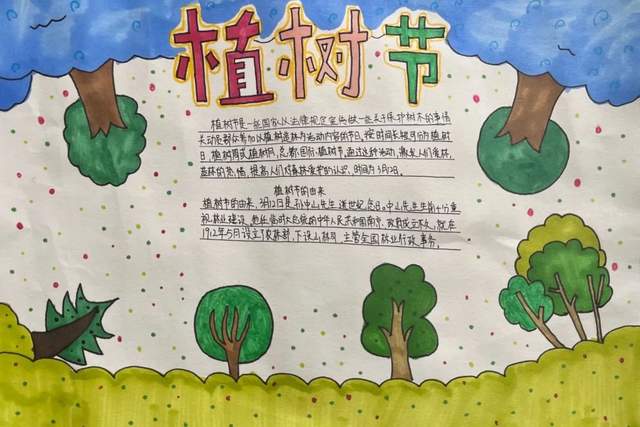 植树节
植树节是一些国家以法律规定宣传
动员群众参加以植树造林为活动内容的节日,按时间长短可分为植树
日,植树周或植树月,总称国际植树节,通过这种活动,激发人们爱林,
造林的热情,提高人们对森林 的认识,时间为3月12日。
植树节的由来
植树节的由来,3月12日是孙中山先生逝世纪念日,中山先生生前十分重
视林业建设,
1912年5月设立了农林部,下设山林司,主管全国林业行政事务。